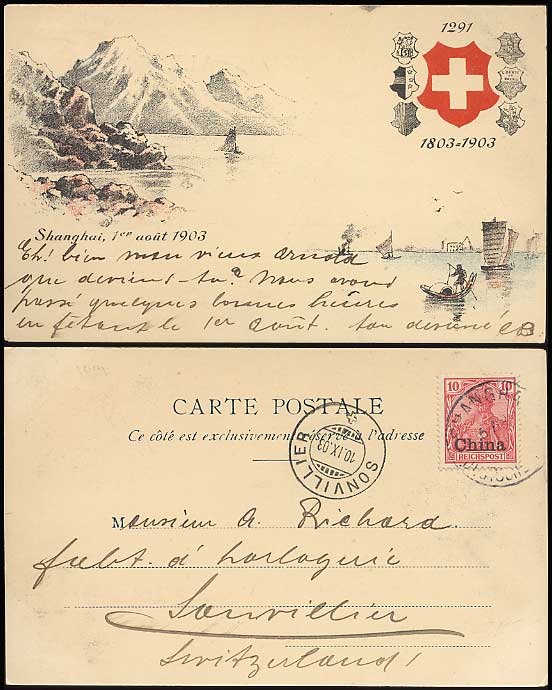 1291
1803=1903
Shanghai, 1er août 1903
Eh! bien mon vieux Arnold
que deviens-tu? Nous avons
passé quelques bonnes heures
en fêtant le 1er août. ton dévoué CB
CARTE POSTALE
Ce côté est exclusivement réservé à l'adresse
10 10
China
REICHSPOST
SHANGHAI
SONVILLIER
10.IX.03
Monsieur A. Richard
fabt. d'horlogerie
Sonvillier
Switzerland!